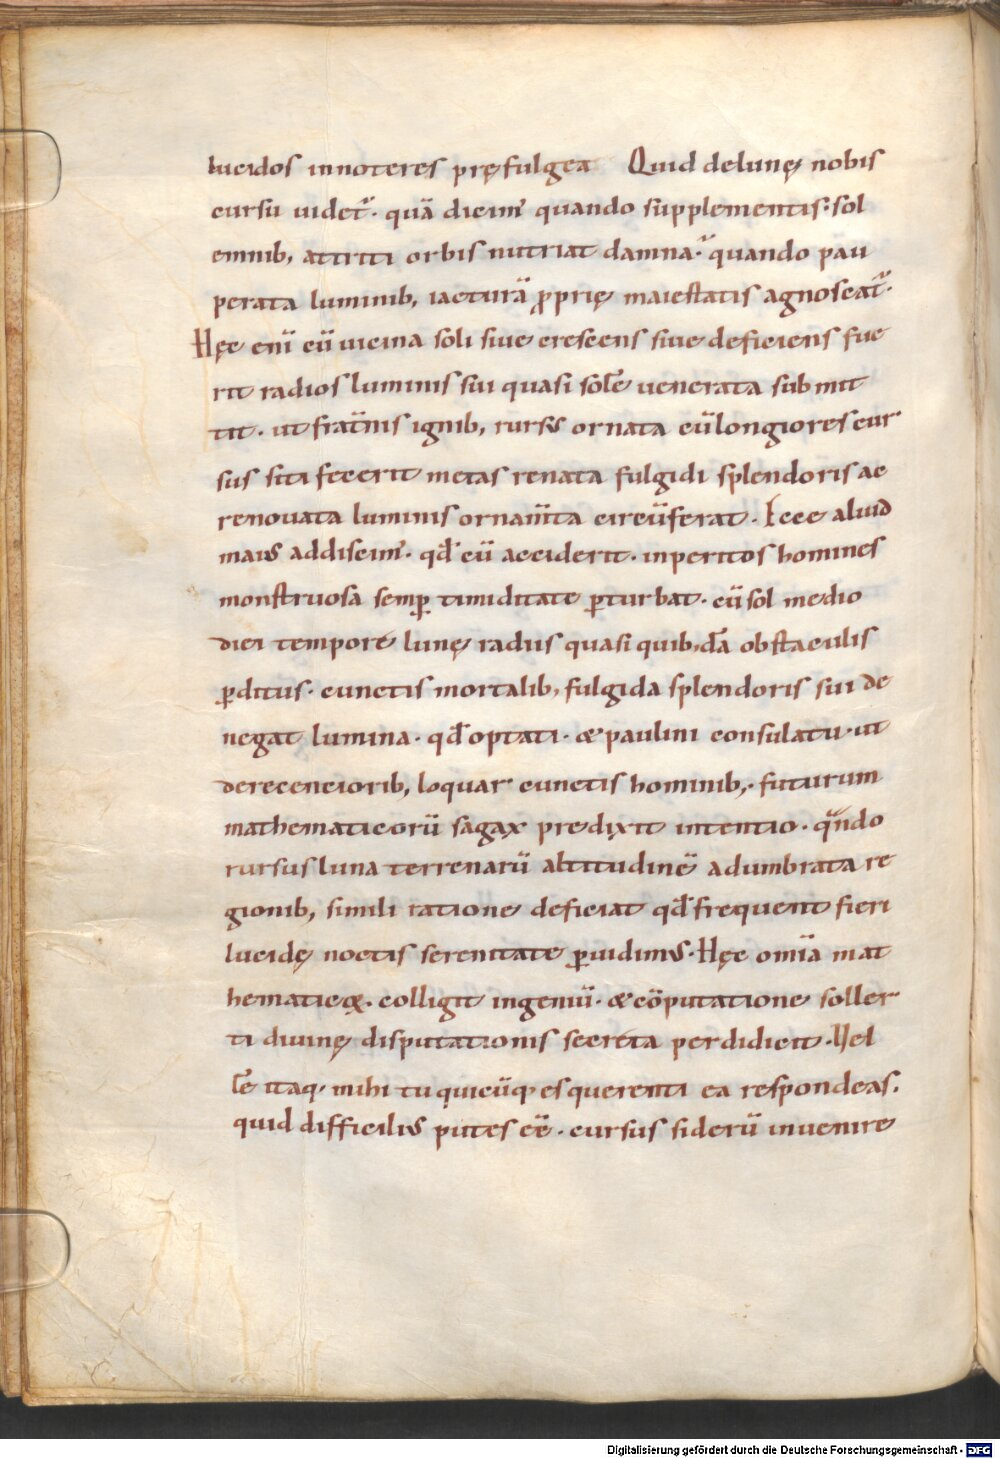 lucidos in noteres pręfulgea Quid delunę nobis
cursu uidet᷒· quā dicim᷒ quando supplementis: sol
emnib, attriti orbis nutriat damna·᷒ quando pau
perata luminib, iacturā ꝓprię maiestatis agnoscat᷒·
Hęc eni̅ cū uicina soli siue crescens siue deficiens fue
rit radios luminis sui quasi sole̅ uenerata submit
tit· ut frat̅nis ignib, rursus ornata cū longiores cur
sus siti fecerit metas renata fulgidi splendoris ac
renouata luminis ornam̅ta circūferat· Ecce aliud
maius addiscim᷒· qd̅ cū acciderit· inperitos homines
monstruosa semꝑ timiditate ꝑturbat· cū sol medio
diei tempore lunę radiis quasi quib,dā obstaculis
ꝑditus· cunctis mortalib, fulgida splendoris sui de
negat lumina· qd̅ optati· & paulini consulatu· ut
derecenciorib, loquar cunctis hominib,· futurum
mathematicorū sagax predixit intentio· qn̅do
rursus luna terrenarū altitudine̅ adumbrata re
gionib, simili ratione deficiat qd̅ frequent fieri
lucidę noctis serenitate ꝑuidimus· Hęc omīa mat
hematicꝫ· colligit ingeniū· & cōputatione soller
ti diuinę disputationis secreta perdidicit· Vel
le̅ itaq· mihi tu quicūq· es querenti ea respondeas.
quid difficilius putes ee̅· cursus siderū inuenire
Digitalisierung gefördert durch die Deutsche Forschungsgemeinschaft - DFG